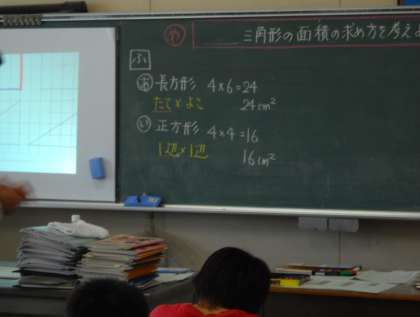 め 三角形の面積の求め方を考えよ
ふ
あ 長方形 4×6=24
たて×よこ 24cm²
い 正方形 4×4=16
1辺×1辺 16cm²